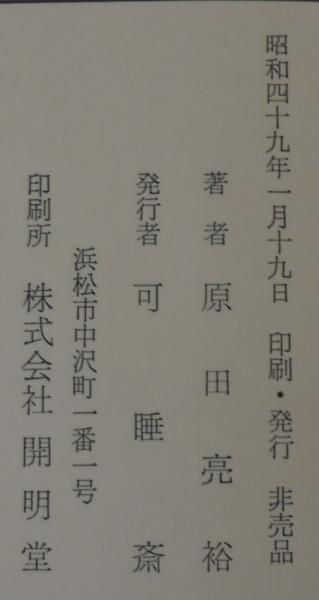 昭和四十九年一月十九日　印刷・発行　非売品
著者　原田亮裕
発行者　可睡斎
浜松市中沢町一番一号
印刷所　株式会社開明堂